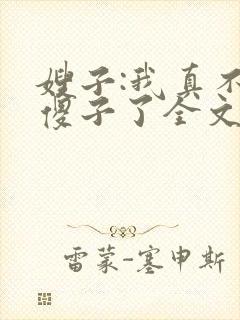 嫂子:我真不
傻子了全文
雷蒙-塞申斯